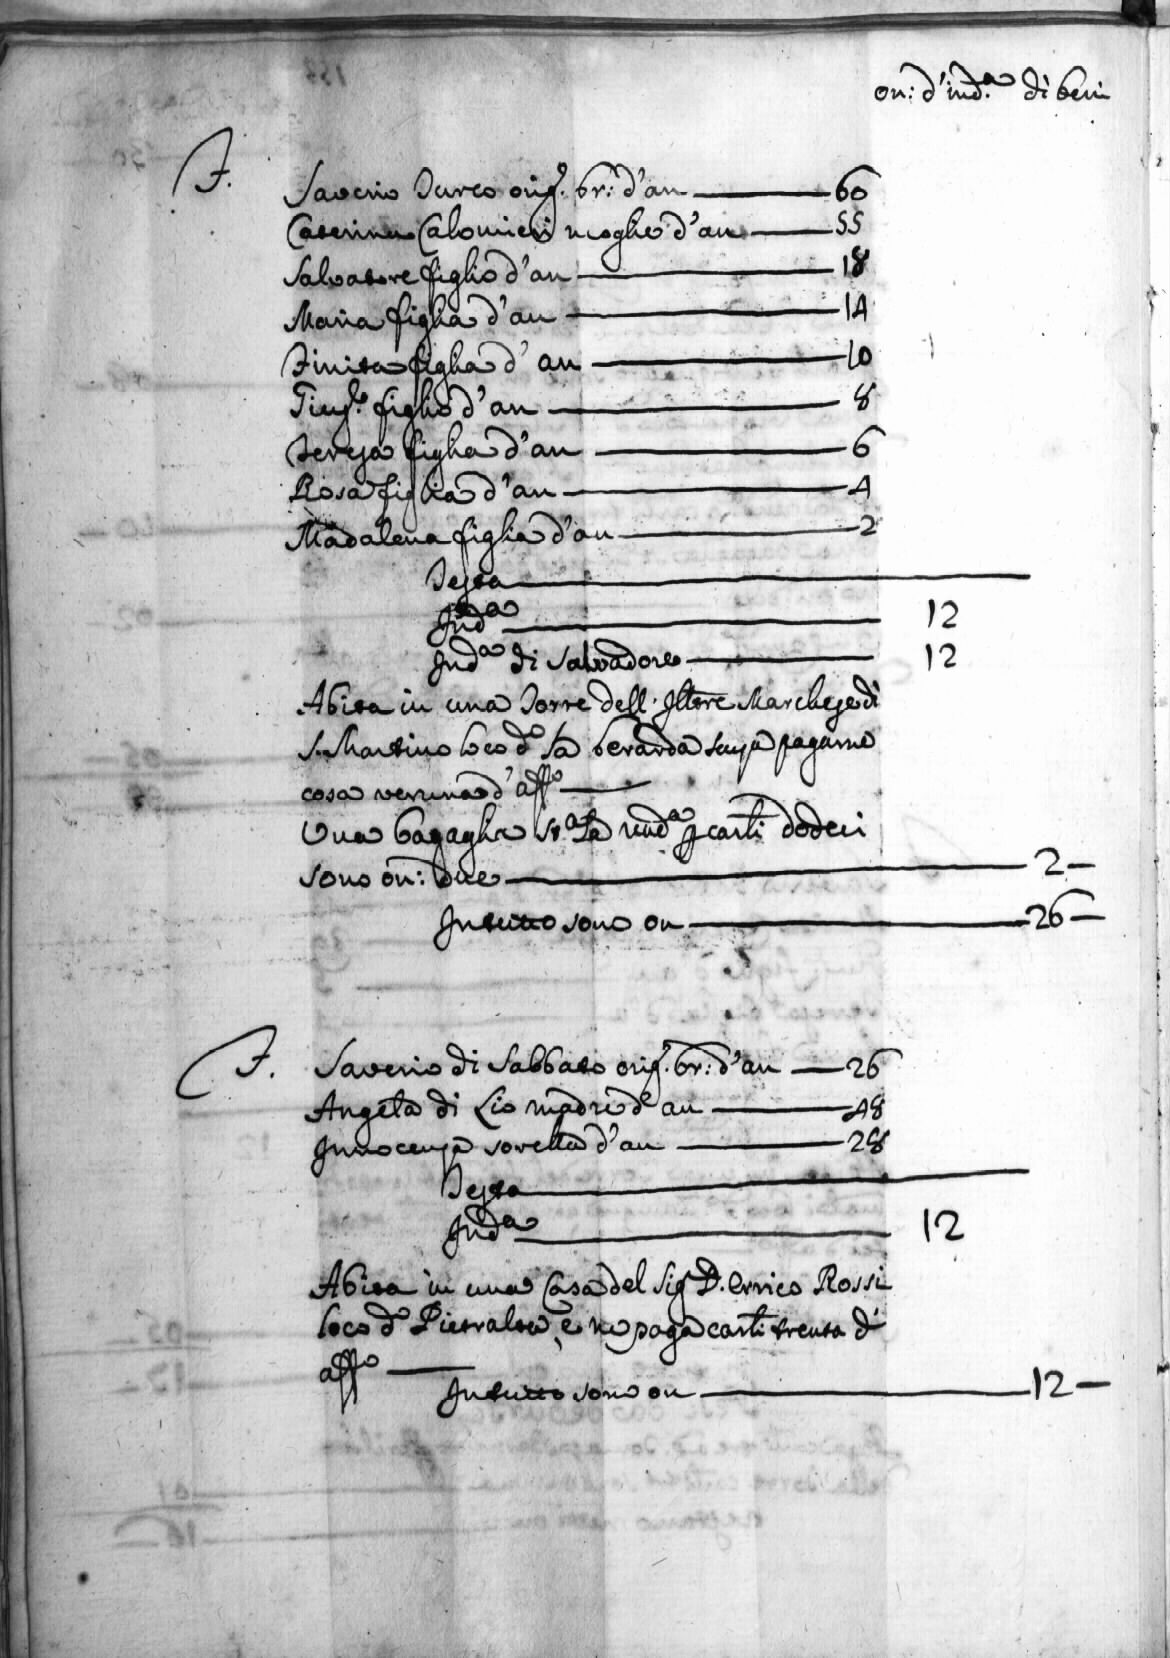 on: d'ind.a di beni
F.
Saverio Turco orig.o br: d'an 60
Caterina Calomieri moglie d'an 55
Salvatore figlio d'an 18
Maria figlia d'an 14
Finita figlia d'an 10
figlio d'an 8
Teresa figlia d'an 6
Rosa figlia d'an 4
Madalena figlia d'an 2
Testa
Ind.a 12
Ind.a di Salvadore 12
Abita in una Torre dell' Illtre Marchese di
S. Martino loco d.o la berarda senza pagarne
cosa veruna d'aff.o
Una bagaglia st.a la rend.a carli dodeci
sono on: due 2
Intutto sono on 26
F.
Saverio di Sabbato orig.o br: d'an 26
Angela di Lio madre d'an 48
Innocenza sorella d'an 28
Testa
Ind.a 12
Abita in una Casa del Sig. D. Errico Rossi
loco d.o Pietralta, e ne paga carli trenta d'
aff.o
Intutto sono on 12